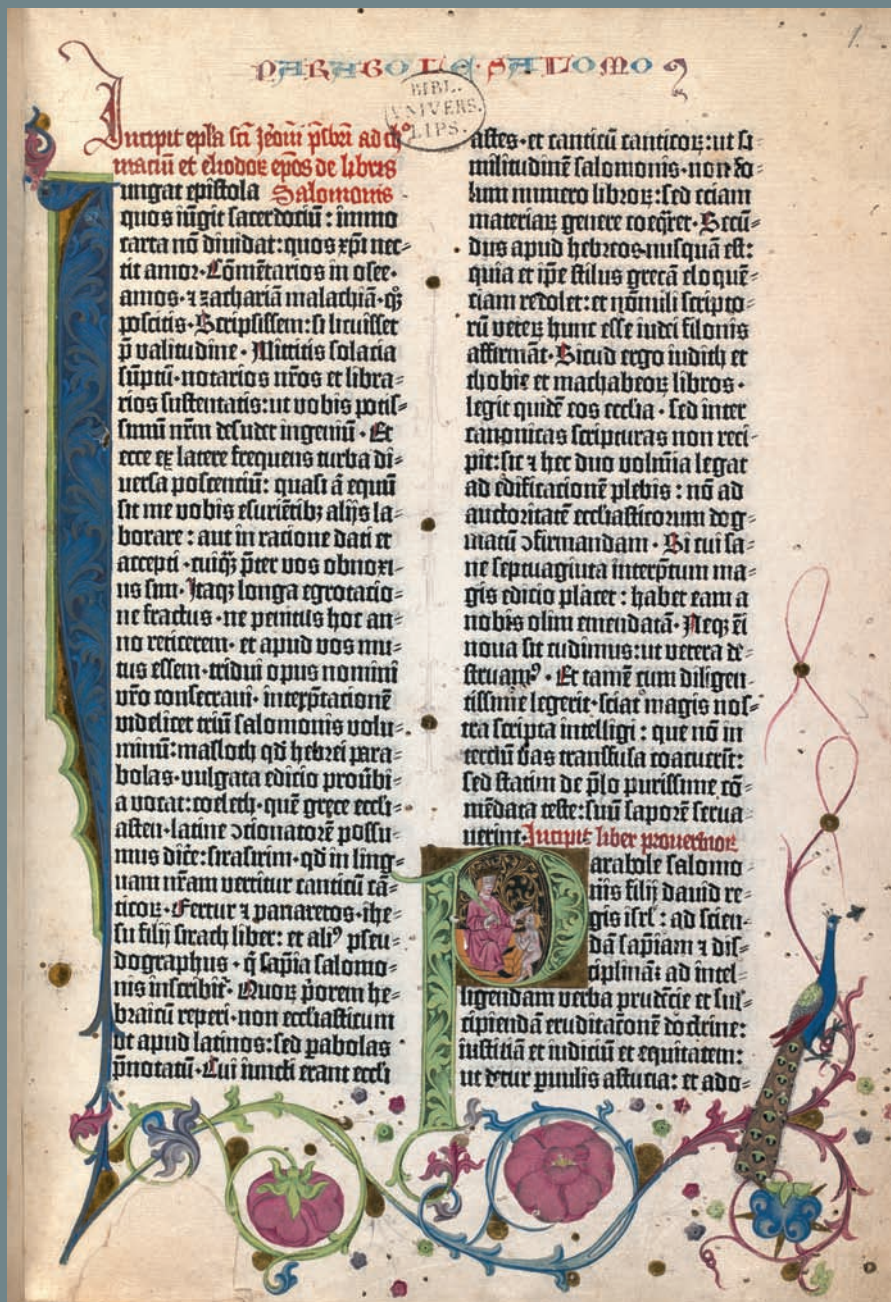 PARABOLE·SALOMOꝫ
1.
BIBL.
UNIVERS.
LIPS.
Incipit epl̄a scī Jeronimi p̄sbrī ad cħo
maciū et eliodoꝝ ep̄os de libris
Salomonis
Iungat epistola
quos iūgit sacerdociū : immo
carta nō diuidat: quos xp̄i nec⸗
tit amor· Cōmētarios in osee·
amos· ⁊ zachariā malachiā· qꝫ
poscitis· Scripsissem: si licuisset
p̄ valitudine· Mittitis solacia
sūptuū· notarios nr̄os et libra⸗
rios sustentatis: ut vobis potis⸗
simū nr̄m desudet ingeniū· Et
ecce ex latere frequens turba di⸗
uersa poscentiū: quasi aut equū
sit me vobis esurientibꝫ alijs la⸗
borare : aut in ratione dati et
accepti· cuiqꝫ p̄ter vos obnoxi⸗
us sim· Itaqꝫ longa egrotacio⸗
ne fractus· ne penitus hoc an⸗
no reticerem· et apud vos mu⸗
tus essem· tridui opus nomini
vr̄o consecraui· interp̄tationē
videlicet triū salomonis volu⸗
minū: masloth qd̄ hebrei para⸗
bolas· vulgata edicio prouerbi⸗
a vocat: coeleth· quē grece eccli⸗
asten· latine ↄcionatorē possu⸗
mus dicē: sirasirim· qd̄ in ling⸗
uam nr̄am vertitur canticū cā⸗
ticoꝝ· Fertur ⁊ panaretos· ihe⸗
su filij sirach liber: et aliꝰ pseu⸗
dographus· q̄ sapiētia salomo⸗
nis inscribit̄· Quoꝝ priorem he⸗
braicū reperi· non ecclesiasticum
vt apud latinos: sed ꝑabolas
p̄notatū· Cui iuncti erant eccli⸗
astes· et canticū canticoꝝ: ut si⸗
militudinē salomonis· non so⸗
lum numero libroꝝ: sed etiam
materiaꝝ genere coeq̄ret· Secū⸗
dus apud hebreos nusquā est:
quia et ip̄e stilus grecā eloquē⸗
ciam redolet: et nōnulli scripto⸗
rū veteꝝ hunc esse iudei filonis
affirmāt· Sicud ergo iudith et
thobie et machabeoꝝ libros·
legit quidē eos ecclesia· sed inter
canonicas scripturas non reci⸗
pit: sic ⁊ hec duo volumina legat
ad edificationē plebis : nō ad
auctoritatē ecclesiasticorum dog⸗
matū ↄfirmandam· Si cui sa⸗
ne septuaginta interp̄tum ma⸗
gis edicio placet : habet eam a
nobis olim emendatā· Neqꝫ ēi
noua sic cudimus: ut vetera de⸗
struamꝰ· Et tamē cum diligen⸗
tissime legerit· sciat magis nos⸗
tra scripta intelligi : que nō in
terciū vas transfusa coacuerīt:
sed statim de p̄lo purissime cō⸗
mēdata teste: suū saporē serua⸗
uerint· Incipit liber prouerbioꝝ
Parabole salomo⸗
nis filij dauid re⸗
gis isrl̄ : ad scien⸗
dā sapiētiam ⁊ dis⸗
ciplinā: ad intel⸗
ligendam verba prudētie et sus⸗
cipiendā eruditationē doctrine:
iustitiā et iudiciū et equitatem:
ut detur paruulis astucia: et ado⸗